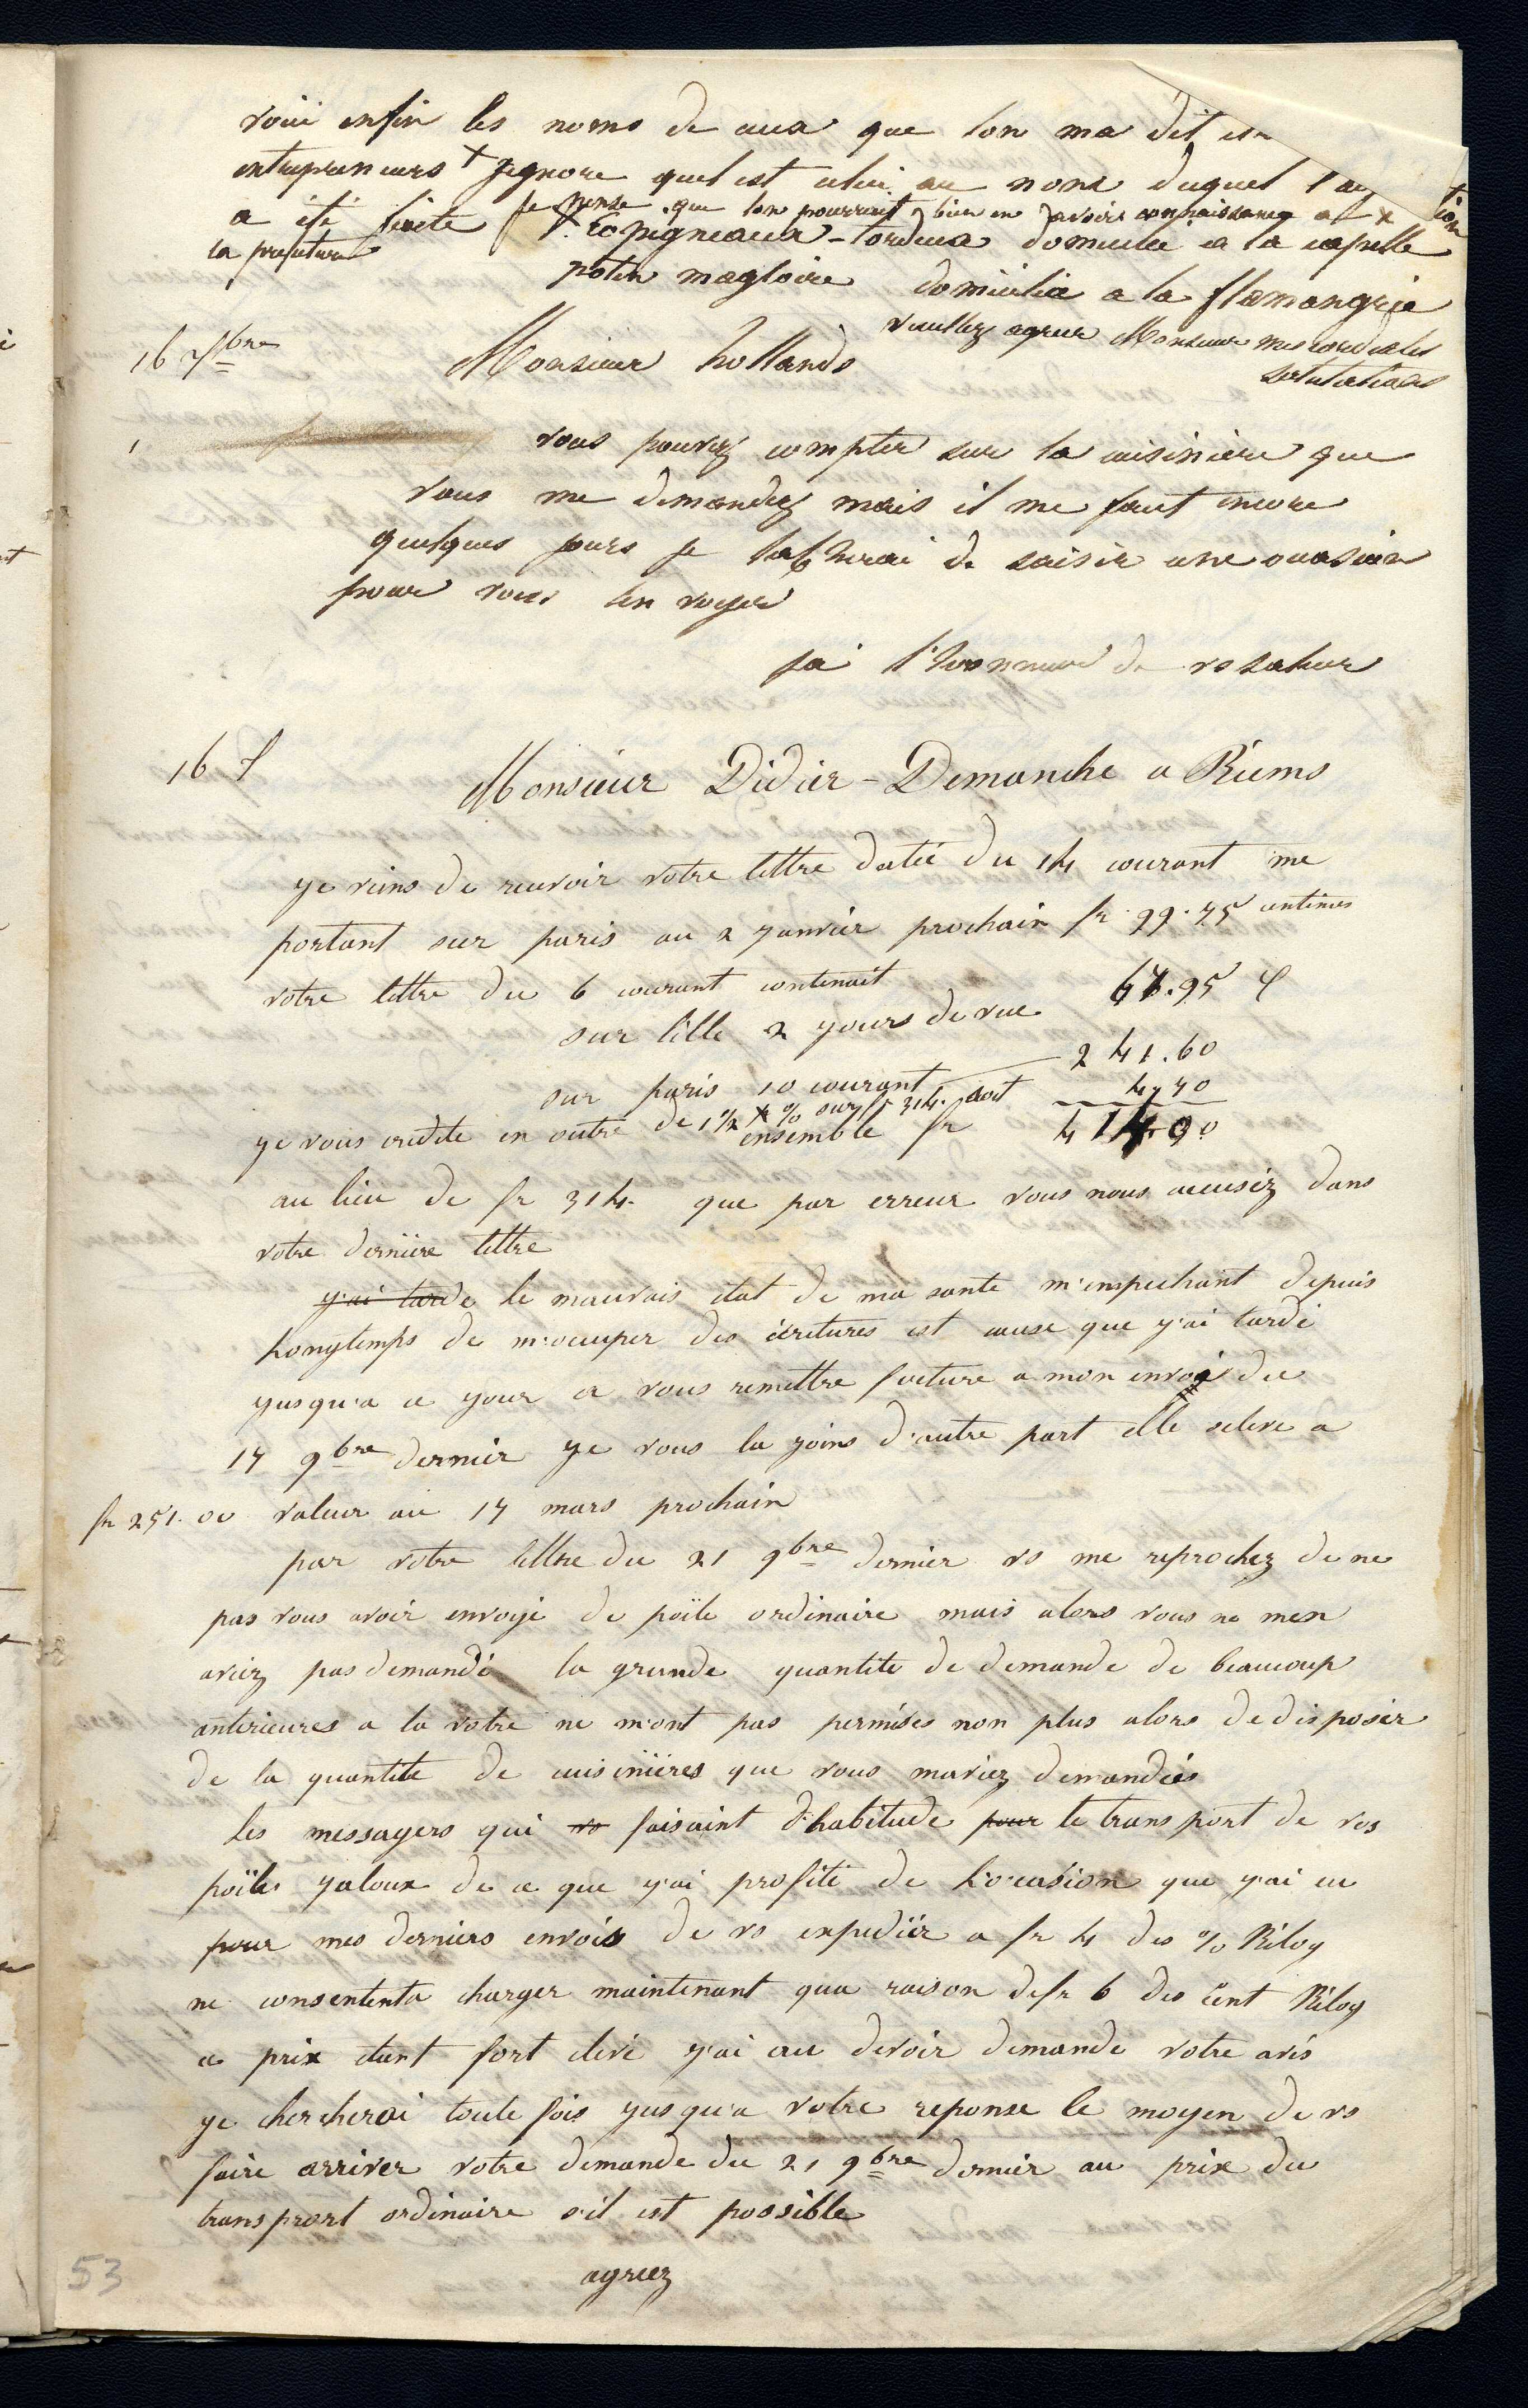 voici enfin les noms de ceux que lon ma dit
entrepreneurs + jignore quel est celui au nom duquel
a été faite je pense que lon pourrait bien en avoir connaissance a x
la prefecture
+ Espigneaux-lordeux domicilié a la capelle
potin magloire domicilié a la flamangrie
veuillez agreer Monsieur mes cordiales
salutations
16 Xbre Monsieur hollande
vous pouvez compter sur la cuisiniere que
vous me demandez mais il me faut encore
quelques jours je tacherai de saisir une occasion
pour vous len voyer
jai l'honneur de vs saluer
16 Monsieur Didier-Demanche a Riems
je viens de recevoir votre lettre datée du 14 courant me
portant sur paris au 2 janvier prochain fr 99.75 centimes
votre lettre du 6 courant contenait
sur lille 2 jours de vue 67.95
sur paris 10 courant 241.60
je vous credite en outre de 1½ % sur f 314. soit 4,70
ensemble fr 414.00
au lieu de fr 314. que par erreur vous nous accusez dans
votre derniere lettre
j'ai tarde le mauvais etat de ma sante m'enpechant depuis
Longtemps de m'occuper des écritures est cause que j'ai tardé
jusqu'a ce jour a vous remettre facture a mon envoi du
17 9bre dernier je vous la joins d'autre part elle seleve a
fr 251.00 valeur au 17 mars prochain
par votre lettre du 21 9bre dernier vs me reprochez de ne
pas vous avoir envoyé de poïle ordinaire mais alors vous ne men
aviez pas demandé la grande quantite de demande de beaucoup
anterieures a la votre ne m'ont pas permises non plus alors de disposer
de la quantite de cuisinieres que vous maviez demandées
les messagers qui vs faisaint d'habitude pour le transport de vos
poïles jaloux de ce que j'ai profité de l'occasion que j'ai eu
pour mes derniers envois de vs expedier a fr 4 des % Kilog
ne consentent a charger maintenant qua raison de fr 6 des cent Kilog
ce prix etant fort elevé j'ai cru devoir demande votre avis
je chercherai toute fois jusqu'a votre reponse le moyen de vs
faire arriver votre demande du 21 9bre dernier au prix du
transprort ordinaire s'il est possible
agreez
53